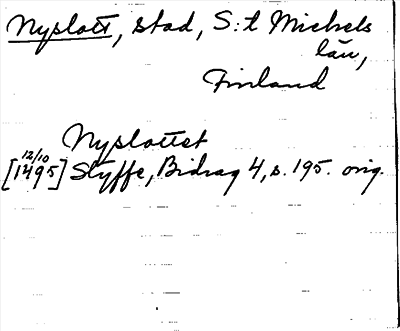 Nyslott, stad, S:t Michels
län,
Finland
Nyslottet
12/10
[1495] Styffe, Bidrag 4, s. 195. orig.